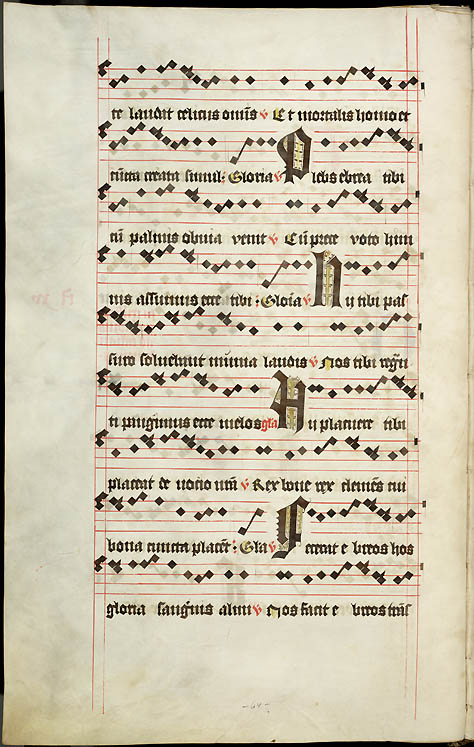 te laudat celicus om̄s V Et mortalis homo et
cūcta creata simul : Gloria V Plebs ebrea tibi
cū palmis obuia venit V Cū prece voto him
nis assumus ecce tibi : Gloīa V Hij tibi pas
suro soluebant mūnia laudis V Nos tibi regn̄a
ti pangimus ecce melos gl̄a Hij placuere tibi
placeat de uocio nr̄a V Rex bone rex clemēs cui
bona cuncta placēt : Gl̄a V Fecerat e breos hos
gloria sanḡuis alm̄i V Nos facit e breos trās
-64-